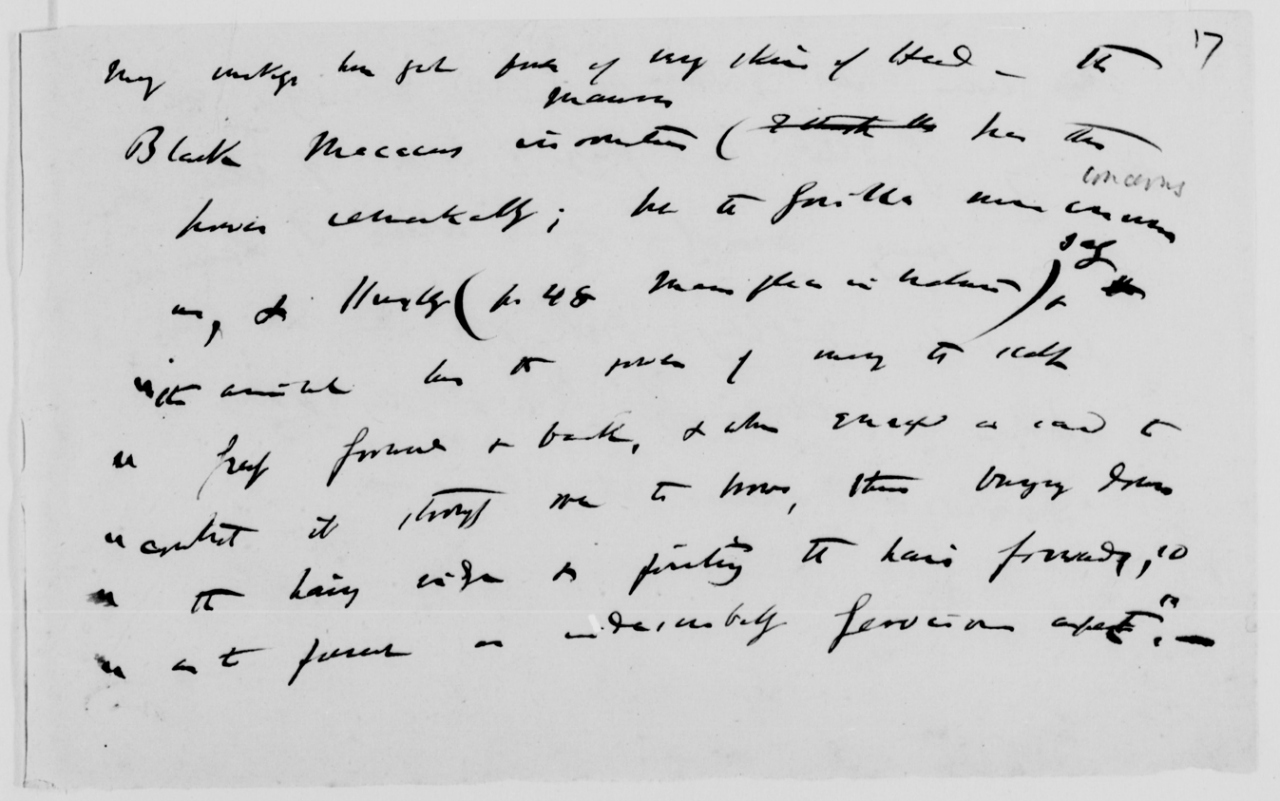 17
Many monkeys have got power of moving skin of Head – The
Black Macacus inornatus (maurus has this
power remarkably; but the Gorilla more concerns
us, & Huxley (p 48 Mans place in Nature) says
"the animal has the power of moving the scalp
" freely forward & back, & when enraged is said to
" contract it strongly over the brow, thus bringing down
" the hairy ridge & pointing the hair forward, so
" as to present an indescribably ferocious aspect". –